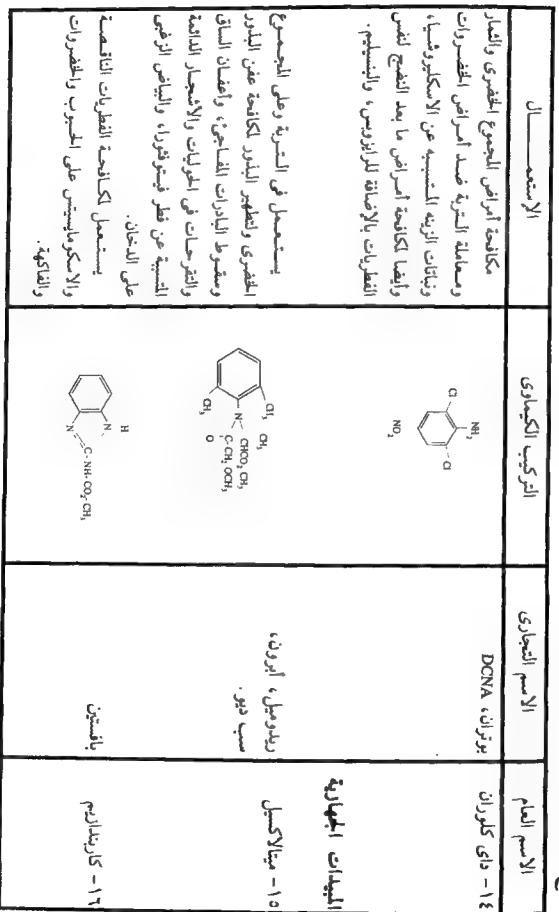 الاسم العام
الاسم التجارى
التركيب الكيماوى
الإستعمـــــال
١٤- داى كلوران
بوتران، DCNA
NH₂
Cl
Cl
NO₂
مكافحة أمراض المجموع الخضرى والثمار
ومعاملة التربة ضد أمراض الخضروات
ونباتات الزينه المتسببه عن الاسكليروشيا،
وأيضا لمكافحة أمراض ما بعد النضج لنفس
الفطريات بالإضافة للرايزوبس، والبنسليم.
المبيدات الجهازية
١٥- ميتالاكسيل
ريدوميل، أبرون،
سب ديو.
CH₃ CH₃
CHCO₂ CH₃
N
C-CH₂ OCH₃
O
CH₃
يستعمل فى التربة وعلى المجموع
الخضرى ولتطهير البذور لمكافحة عفن البذور
وسقوط البادرات المفاجئ، وأعفان الساق
والتقرحات فى الحوليات والاشجار الدائمة
المتسببة عن فطر فيتوفثورا، والبياض الزغبى
على الدخان.
١٦- كاربندازيم
بافستين
H
N
C-NH-CO₂-CH₃
N
يستعمل لمكافحة الفطريات الناقصة
والاسكومايسيتس على الحبوب والخضروات
والفاكهة.